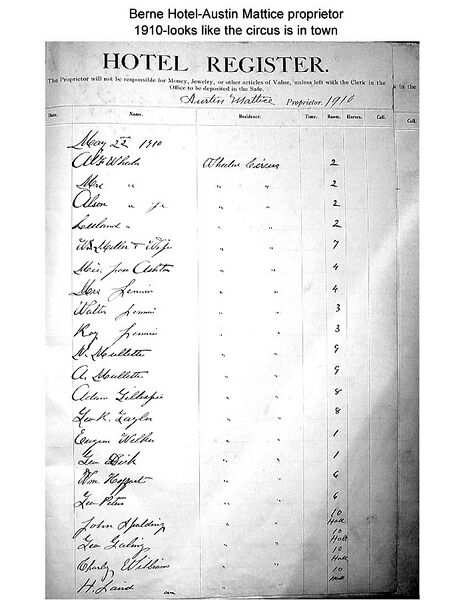 Berne Hotel-Austin Mattice proprietor
1910-looks like the circus is in town
HOTEL REGISTER.
The Proprietor will not be responsible for Money, Jewelry, or other articles of Value, unless left with the Clerk in the
Office to be deposited in the Safe.
Austin Mattice Proprietor. 1910
Date. Name. Residence. Time. Room. Horses. Call.
May 22 1910
Al F Wheeler Wheeler Circus 2
Mrs " " " 2
Alson " Jr " " 2
" " " 2
& Wife " " 7
Ashton " " 4
Mrs Jennier " " 4
Walter Jennier " " 3
Roy Jennier " " 3
W. Mullette " " 9
A. Mullette " " 9
Adam Gillespie " " 8
Geo K. Taylor " " 8
Eugene Welker " " 1
Geo " " 1
Wm " " 6
Geo Peters " " 6
John Spalding " " 10 Hall
Geo " " 10 Hall
Charley Williams " " 10 Hall
H. Laird 10 Hall
in the
Call.